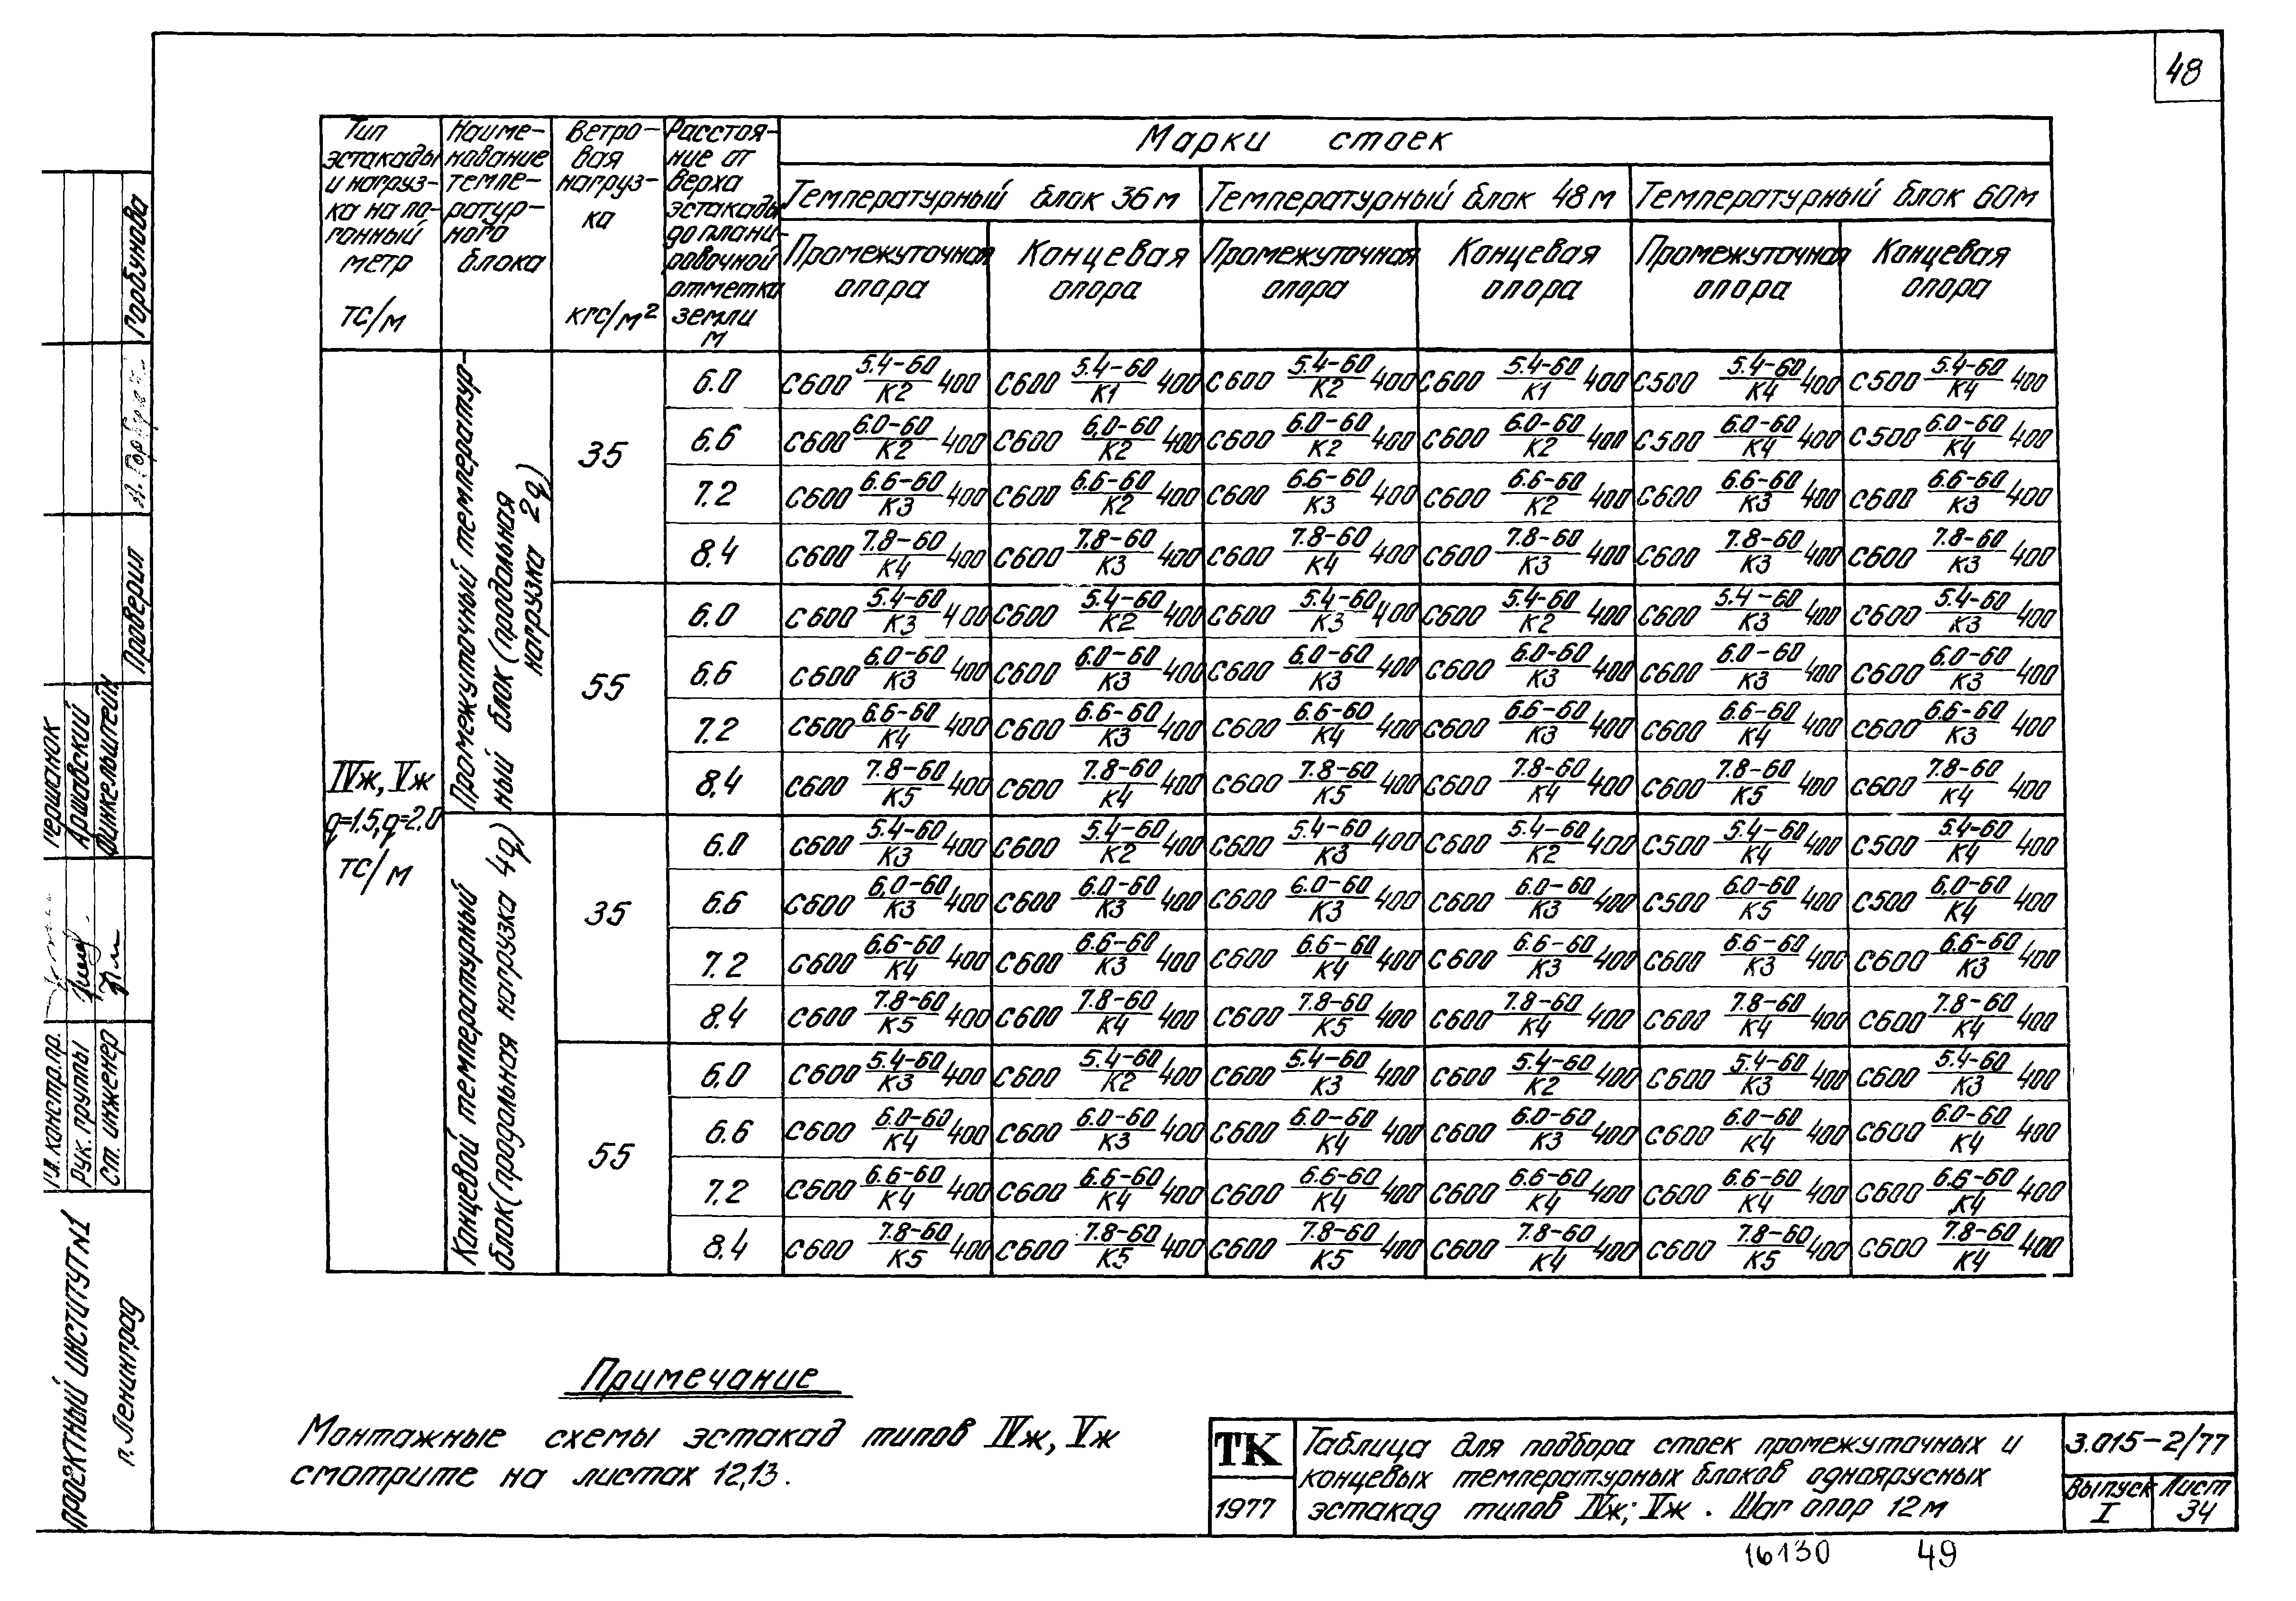 48
Тип эстакады и нагруз- ка на по- гонный метр тс/м
Наиме- нование темпе- ратур- ного блока
Ветро- вая нагруз- ка кгс/м²
Расстоя- ние от верха эстакады до плани- ровочной отметки земли м
Марки стоек
Температурный блок 36 м Температурный блок 48 м Температурный блок 60 м
Промежуточная опора Концевая опора Промежуточная опора Концевая опора Промежуточная опора Концевая опора
IVж, Vж
q=1.5, q=2.0
тс/м
Промежуточный температур-
ный блок (продольная
нагрузка 2q)
35
6.0 С600 5.4-60/К2 400 С600 5.4-60/К1 400 С600 5.4-60/К2 400 С600 5.4-60/К1 400 С500 5.4-60/К4 400 С500 5.4-60/К4 400
6.6 С600 6.0-60/К2 400 С600 6.0-60/К2 400 С600 6.0-60/К2 400 С600 6.0-60/К2 400 С500 6.0-60/К4 400 С500 6.0-60/К4 400
7.2 С600 6.6-60/К3 400 С600 6.6-60/К2 400 С600 6.6-60/К3 400 С600 6.6-60/К2 400 С600 6.6-60/К3 400 С600 6.6-60/К3 400
8.4 С600 7.8-60/К4 400 С600 7.8-60/К3 400 С600 7.8-60/К4 400 С600 7.8-60/К3 400 С600 7.8-60/К3 400 С600 7.8-60/К3 400
55
6.0 С600 5.4-60/К3 400 С600 5.4-60/К2 400 С600 5.4-60/К3 400 С600 5.4-60/К2 400 С600 5.4-60/К3 400 С600 5.4-60/К3 400
6.6 С600 6.0-60/К3 400 С600 6.0-60/К3 400 С600 6.0-60/К3 400 С600 6.0-60/К3 400 С600 6.0-60/К3 400 С600 6.0-60/К3 400
7.2 С600 6.6-60/К4 400 С600 6.6-60/К3 400 С600 6.6-60/К4 400 С600 6.6-60/К3 400 С600 6.6-60/К4 400 С600 6.6-60/К3 400
8.4 С600 7.8-60/К5 400 С600 7.8-60/К4 400 С600 7.8-60/К5 400 С600 7.8-60/К4 400 С600 7.8-60/К5 400 С600 7.8-60/К4 400
Концевой температурный
блок (продольная нагрузка 4q)
35
6.0 С600 5.4-60/К3 400 С600 5.4-60/К2 400 С600 5.4-60/К3 400 С600 5.4-60/К2 400 С500 5.4-60/К4 400 С500 5.4-60/К4 400
6.6 С600 6.0-60/К3 400 С600 6.0-60/К3 400 С600 6.0-60/К3 400 С600 6.0-60/К3 400 С500 6.0-60/К5 400 С500 6.0-60/К4 400
7.2 С600 6.6-60/К4 400 С600 6.6-60/К3 400 С600 6.6-60/К4 400 С600 6.6-60/К3 400 С600 6.6-60/К3 400 С600 6.6-60/К3 400
8.4 С600 7.8-60/К5 400 С600 7.8-60/К4 400 С600 7.8-60/К5 400 С600 7.8-60/К4 400 С600 7.8-60/К4 400 С600 7.8-60/К4 400
55
6.0 С600 5.4-60/К3 400 С600 5.4-60/К2 400 С600 5.4-60/К3 400 С600 5.4-60/К2 400 С600 5.4-60/К3 400 С600 5.4-60/К3 400
6.6 С600 6.0-60/К4 400 С600 6.0-60/К3 400 С600 6.0-60/К4 400 С600 6.0-60/К3 400 С600 6.0-60/К4 400 С600 6.0-60/К4 400
7.2 С600 6.6-60/К4 400 С600 6.6-60/К4 400 С600 6.6-60/К4 400 С600 6.6-60/К4 400 С600 6.6-60/К4 400 С600 6.6-60/К4 400
8.4 С600 7.8-60/К5 400 С600 7.8-60/К5 400 С600 7.8-60/К5 400 С600 7.8-60/К4 400 С600 7.8-60/К5 400 С600 7.8-60/К4 400
Примечание
Монтажные схемы эстакад типов IVж, Vж
смотрите на листах 12,13.
ТК
1977
Таблица для подбора стоек промежуточных и
концевых температурных блоков одноярусных
эстакад типов IVж; Vж. Шаг опор 12 м
3.015-2/77
Выпуск I
Лист 34
16130 49
Проектный институт №1
п. Ленинград
Гл. констр. пр.
Рук. группы Аршавский
Ст. инженер Финкельштейн
Проверил Горбунова